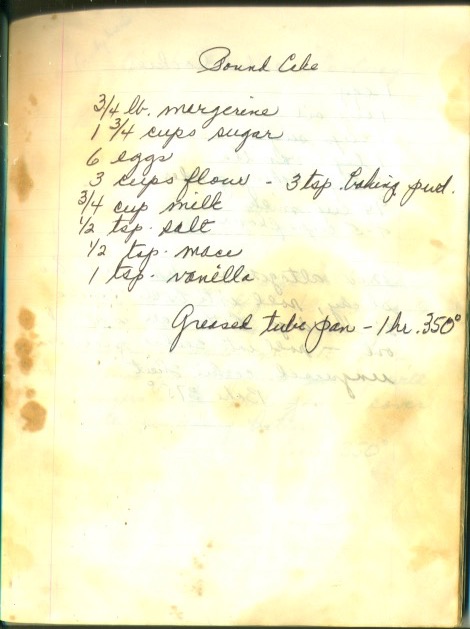 Pound Cake
3/4 lb. margerine
1 3/4 cups sugar
6 eggs
3 cups flour - 3 tsp. baking pwd.
3/4 cup milk
1/2 tsp. salt
1/2 tsp. mace
1 tsp. vanilla
Greased tube pan - 1 hr. 350°